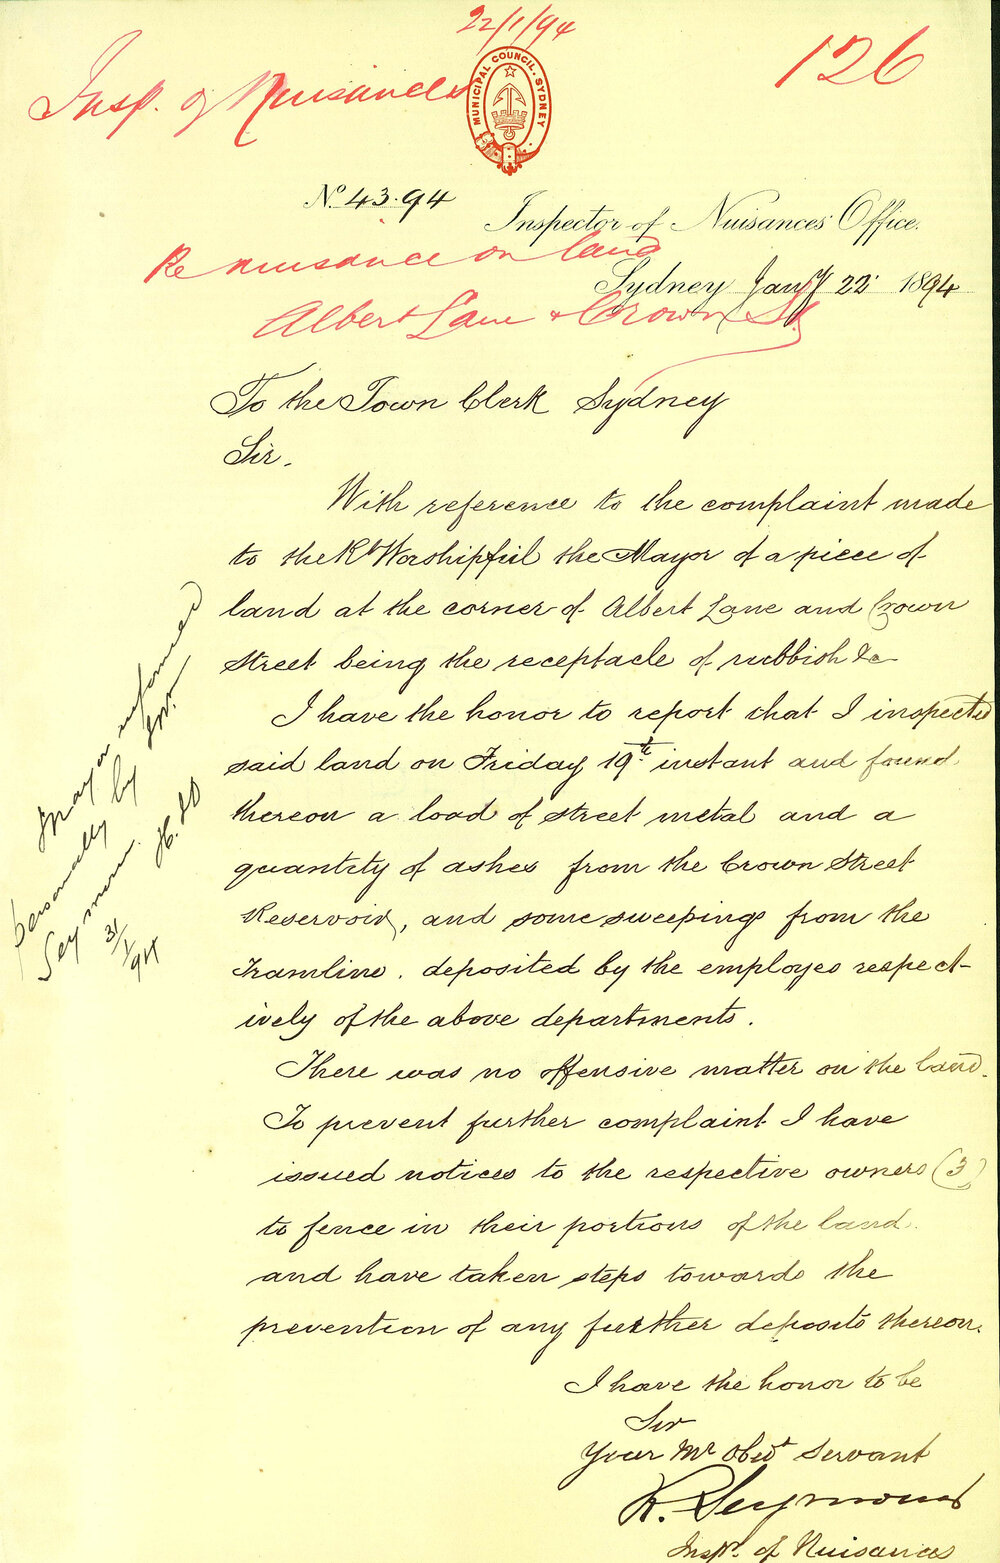 22/1/94
126
Insp. of Nuisances
MUNICIPAL COUNCIL. SYDNEY
No. 43.94
Inspector of Nuisances' Office.
Re nuisance on land
Sydney Jany 22 1894
Albert Lane & Crown St
To the Town Clerk Sydney
Sir.
With reference to the complaint made
to the Rt Worshipful the Mayor of a piece of
land at the corner of Albert Lane and Crown
Street being the receptacle of rubbish &c
I have the honor to report that I inspected
said land on Friday 19th instant and found
thereon a load of street metal and a
quantity of ashes from the Crown Street
Reservoir, and some sweepings from the
Tramline. deposited by the employes respect-
ively of the above departments.
There was no offensive matter on the land.
To prevent further complaint I have
issued notices to the respective owners (3)
to fence in their portions of the land.
and have taken steps towards the
prevention of any further deposits thereon.
I have the honor to be
Sir
Your Mt Obedt Servant
R. Seymour
Inspr. of Nuisances
Mayor informed
personally by Inspr
Seymour. H.
31/1/94